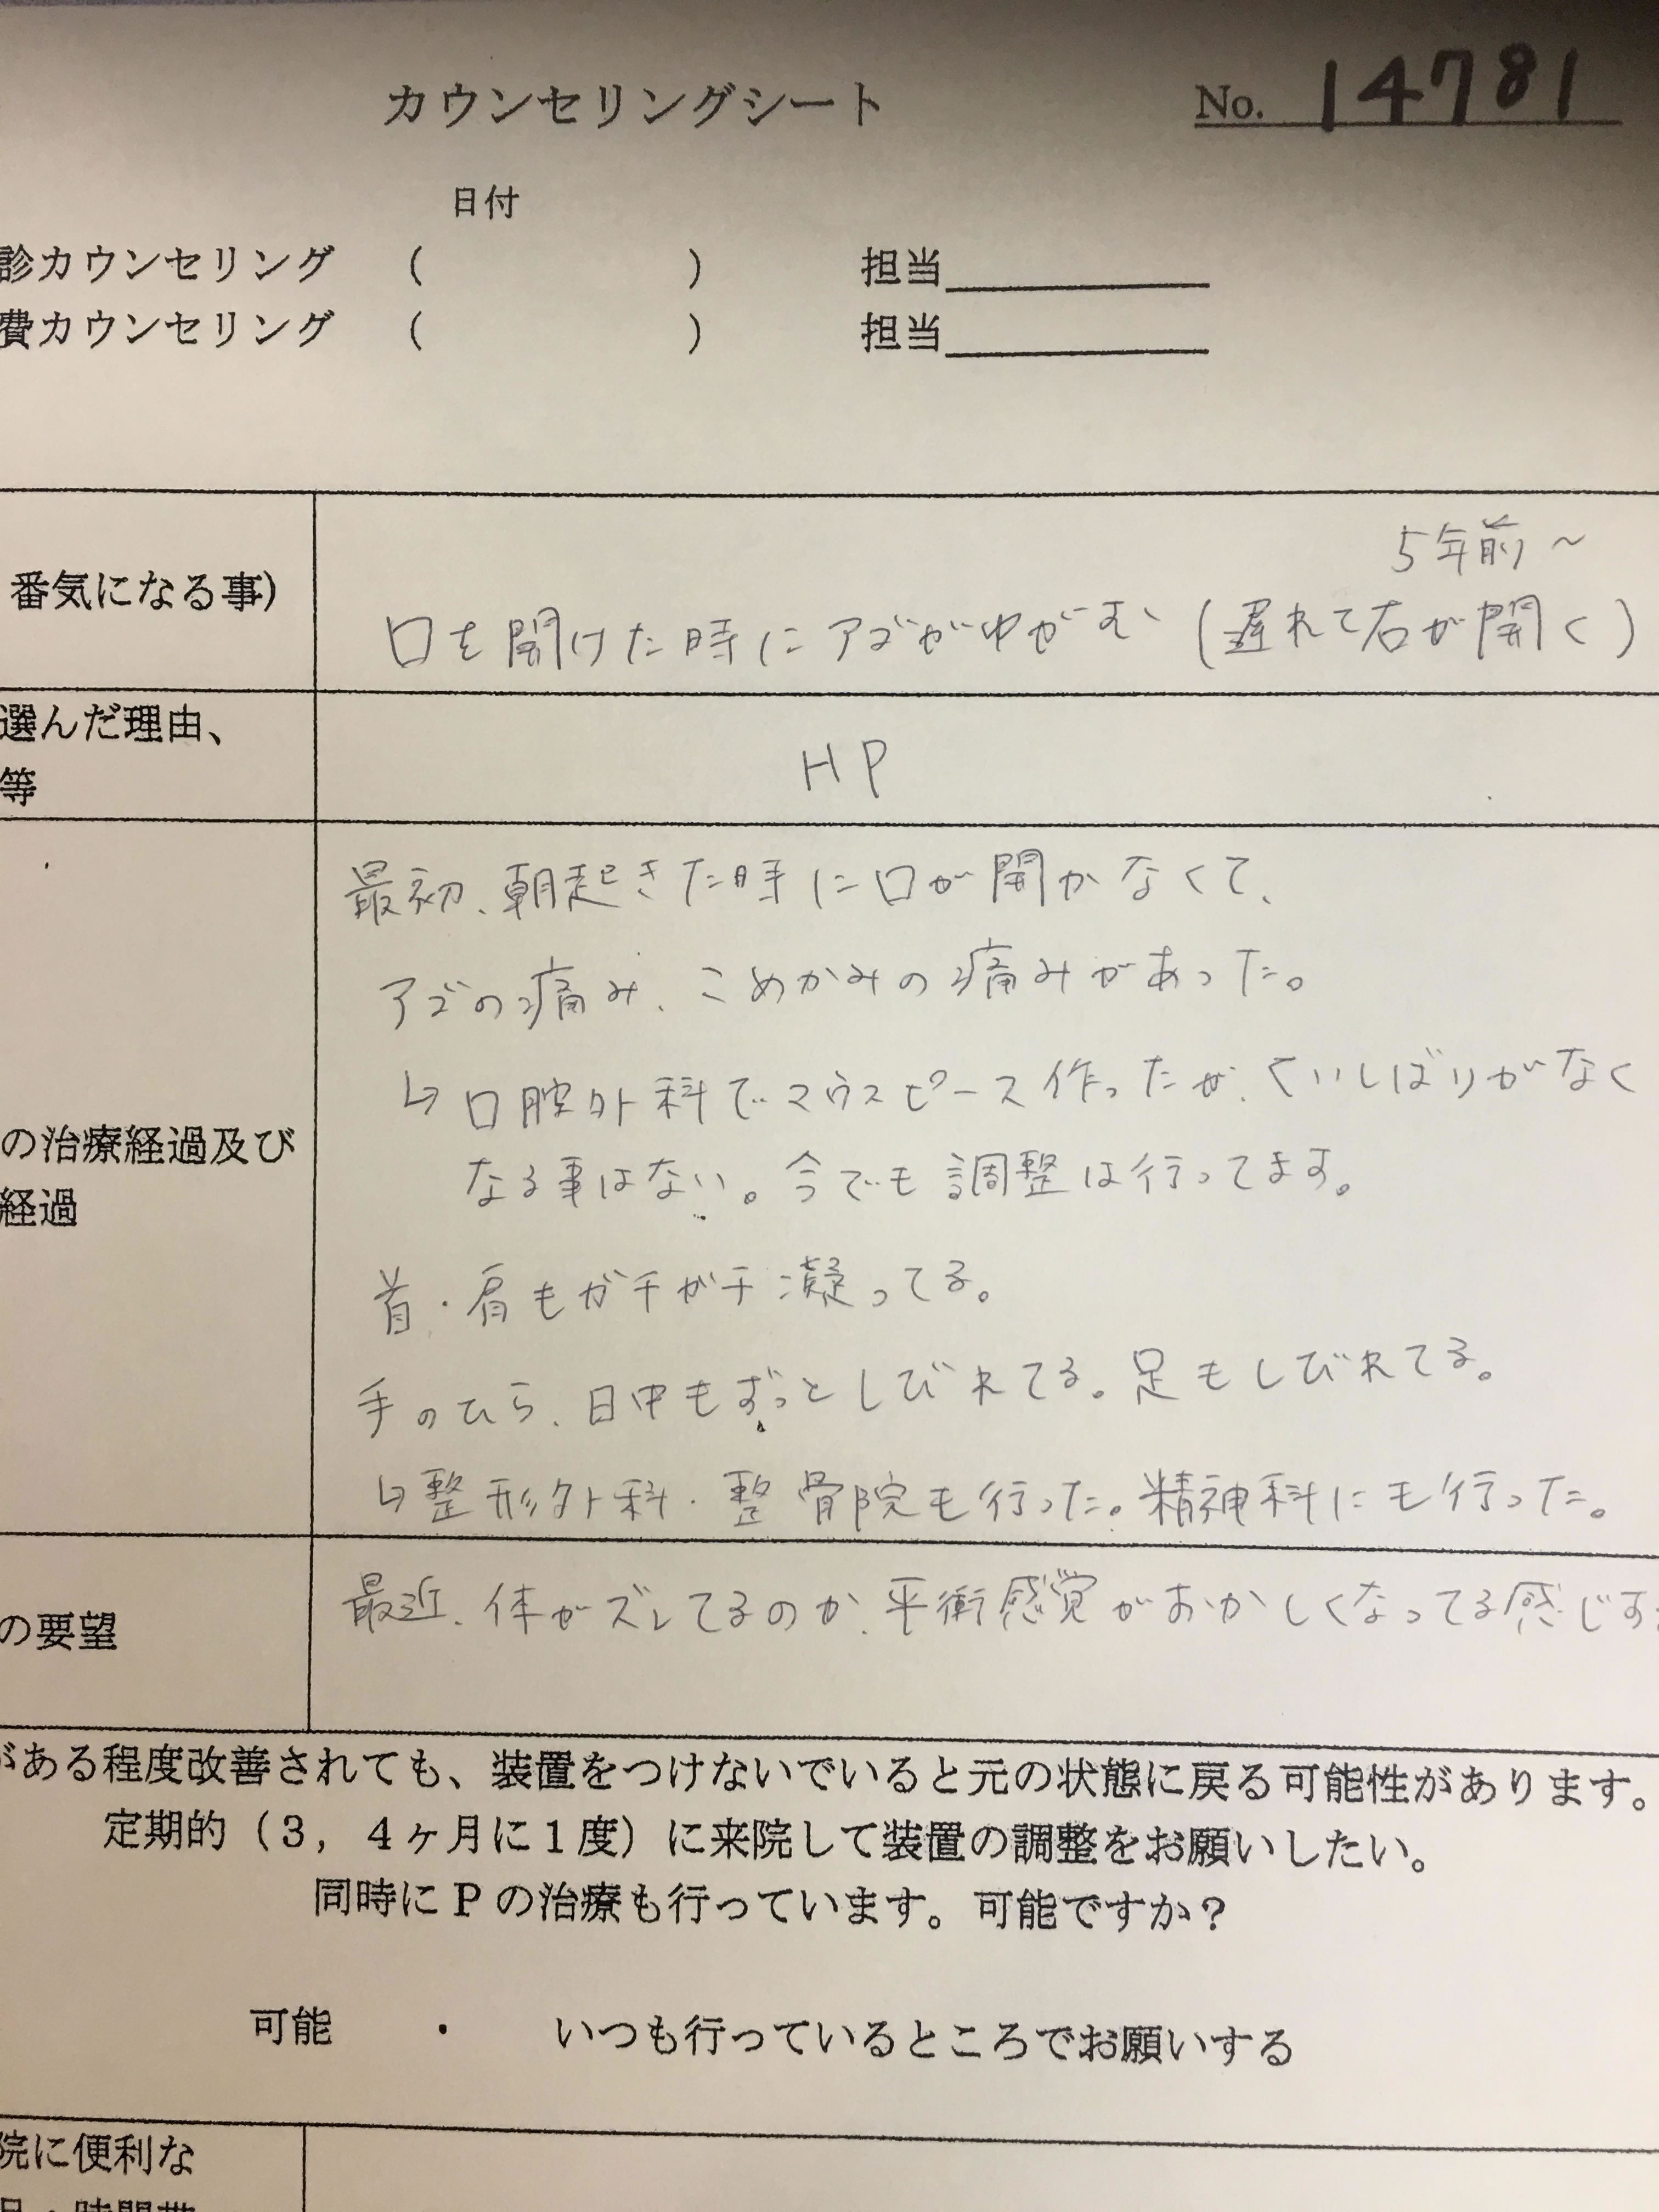 カウンセリングシート
No. 14781
日付
診カウンセリング ( ) 担当
費カウンセリング ( ) 担当
5年前～
番気になる事)
口を開けた時にアゴがゆがむ (遅れて右が開く)
選んだ理由、
等
HP
最初、朝起きた時に口が開かなくて、
アゴの痛み、こめかみの痛みがあった。
↳口腔外科でマウスピース作ったが、くいしばりがなく
なる事はない。今でも調整は行ってます。
の治療経過及び
経過
首・肩もガチガチ凝ってる。
手のひら、日中もずっとしびれてる。足もしびれてる。
↳整形外科・整骨院も行った。精神科にも行った。
の要望
最近、体がズレてるのか、平衡感覚がおかしくなってる感じす
がある程度改善されても、装置をつけないでいると元の状態に戻る可能性があります。
定期的（３，４ヶ月に１度）に来院して装置の調整をお願いしたい。
同時にＰの治療も行っています。可能ですか？
可能 ・ いつも行っているところでお願いする
院に便利な